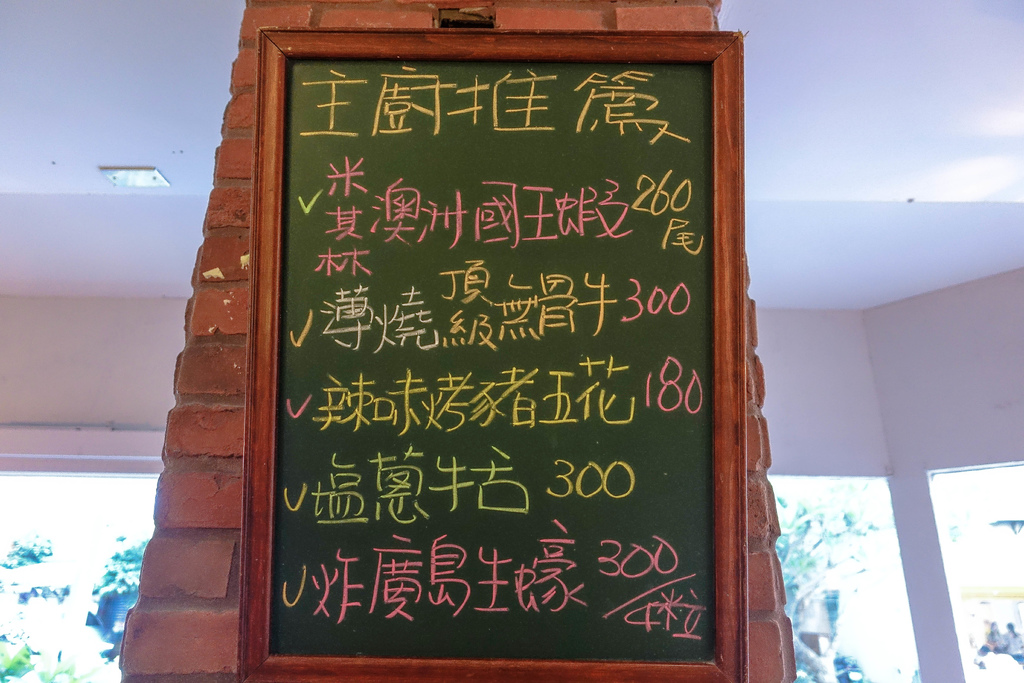 主廚推薦
✓米其林澳洲國王蝦 260尾
✓薄燒頂級無骨牛 300
✓辣味烤豬五花 180
✓塩蔥牛舌 300
✓炸廣島生蠔 300/4粒